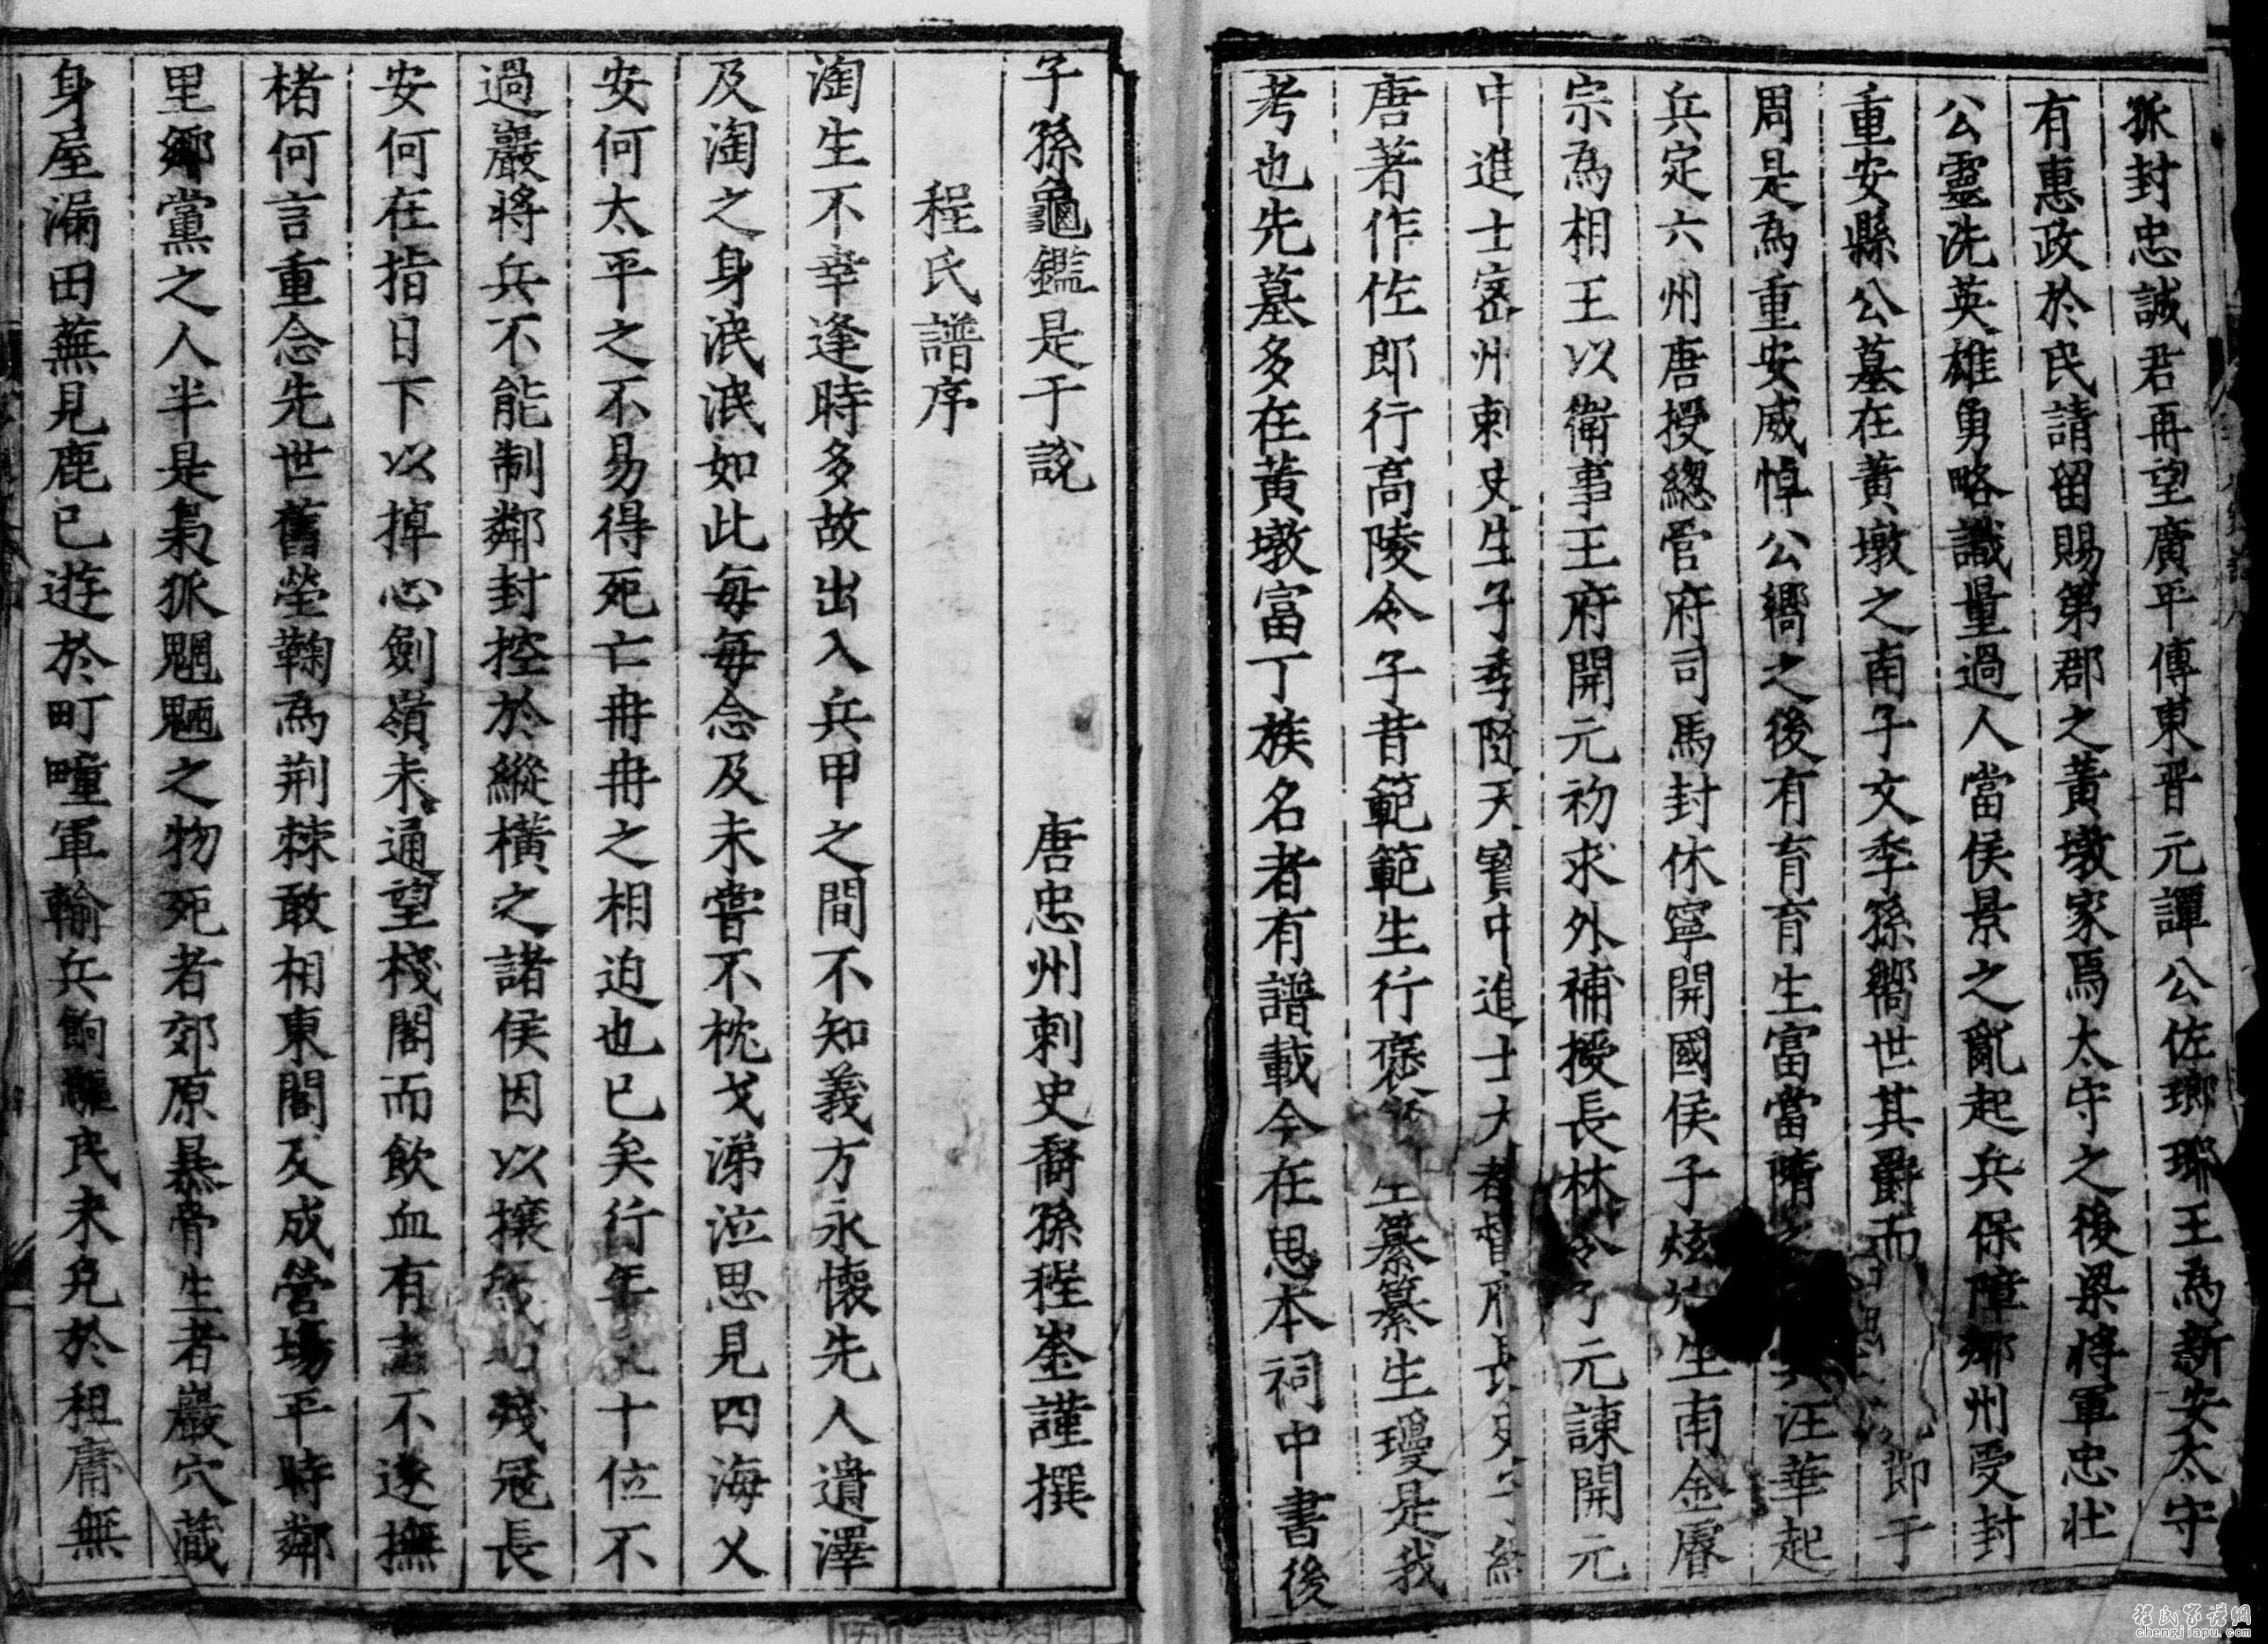 孤封忠誠君再望廣平傳東晋元譚公佐瑯琊王為新安太守
有惠政於民請留賜第郡之黃墩家焉太守之後梁將軍忠壯
公靈洗英雄勇略識量過人當侯景之亂起兵保障鄉州受封
重安縣公墓在黃墩之南子文季孫嚮世其爵而 節于
周是為重安威悼公嚮之後有育育生富富當隋 汪華起
兵定六州唐授總管府司馬封休寧開國侯子炫 生南金睿
宗為相王以衛事王府開元初求外補授長林令子元諫開元
中進士密州刺史生子季隨天寶中進士大都督府長史 
唐著作佐郎行高陵令子昔範範生行褒 生纂纂生瓊是我
考也先墓多在黃墩富丁族名者有譜載今在思本祠中書後
子孫龜鑑是于說
唐忠州刺史裔孫程崟謹撰
程氏譜序
淘生不幸逢時多故出入兵甲之間不知義方永懷先人遺澤
及淘之身泯泯如此每每念及未嘗不枕戈涕泣思見四海乂
安何太平之不易得死亡冉冉之相迫也已矣行年 十位不
過巖將兵不能制鄰封控於縱橫之諸侯因以攘 殘冦長
安何在指日下以掉心劍嶺未通望棧閣而飲血有 不遂撫
楮何言重念先世舊塋鞠為荆棘敢相東閣及成營塲平時鄰
里鄉黨之人半是梟狐魍魎之物死者郊原暴骨生者巖穴藏
身屋漏田蕪見鹿已遊於町疃軍輸兵餉 民未免於租庸無
程氏家譜網
chengjiapu.com